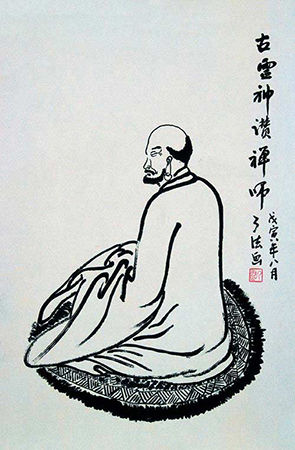 古霊神讚禅师
戊寅年八月
了法画